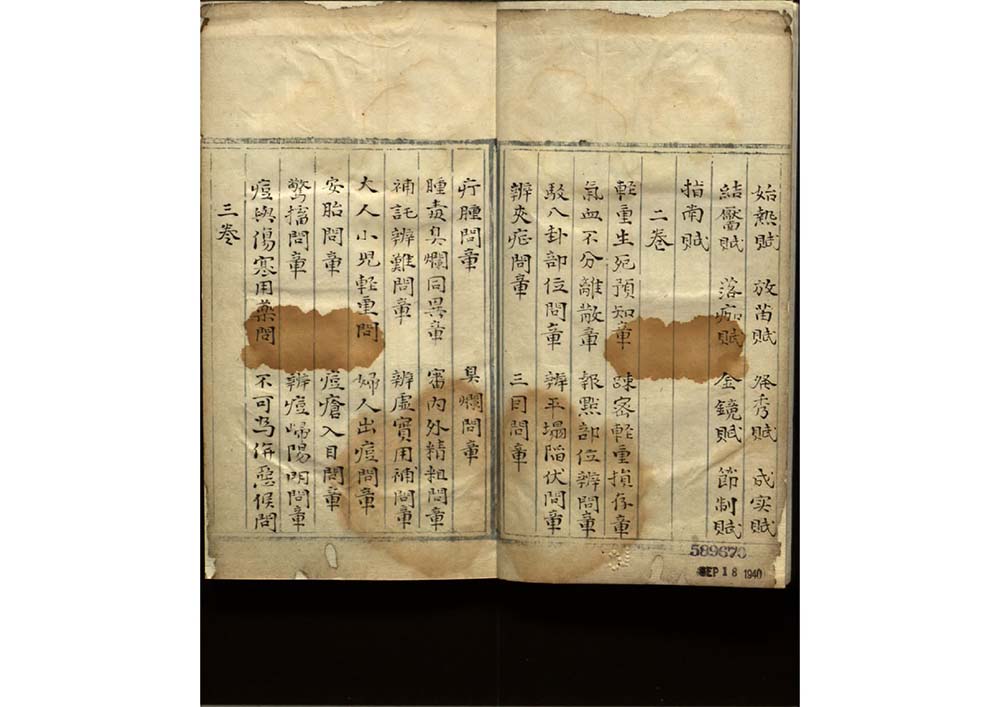 始熱賦 放苗賦 發秀賦 成实賦
結靨賦 落痂賦 金鏡賦 節制賦
指南賦
二卷
輕重生死預知章 踈密輕重損係章
氣血不分離散章 報點部位辨問章
駁八卦部位問章 辨平塌陷伏問章
辨夾症問章 三日問章
疔腫問章 臭爛問章
腫毒臭爛同異章 審內外精粗問章
補託辨難問章 辨虛實用補問章
大人小児輕重問 婦人出痘問章
安胎問章 痘瘡入目問章
驚搐問章 辨痘歸陽明問章
痘與傷寒用藥問 不可为併惡候問
三卷
589673
SEP 18 1940